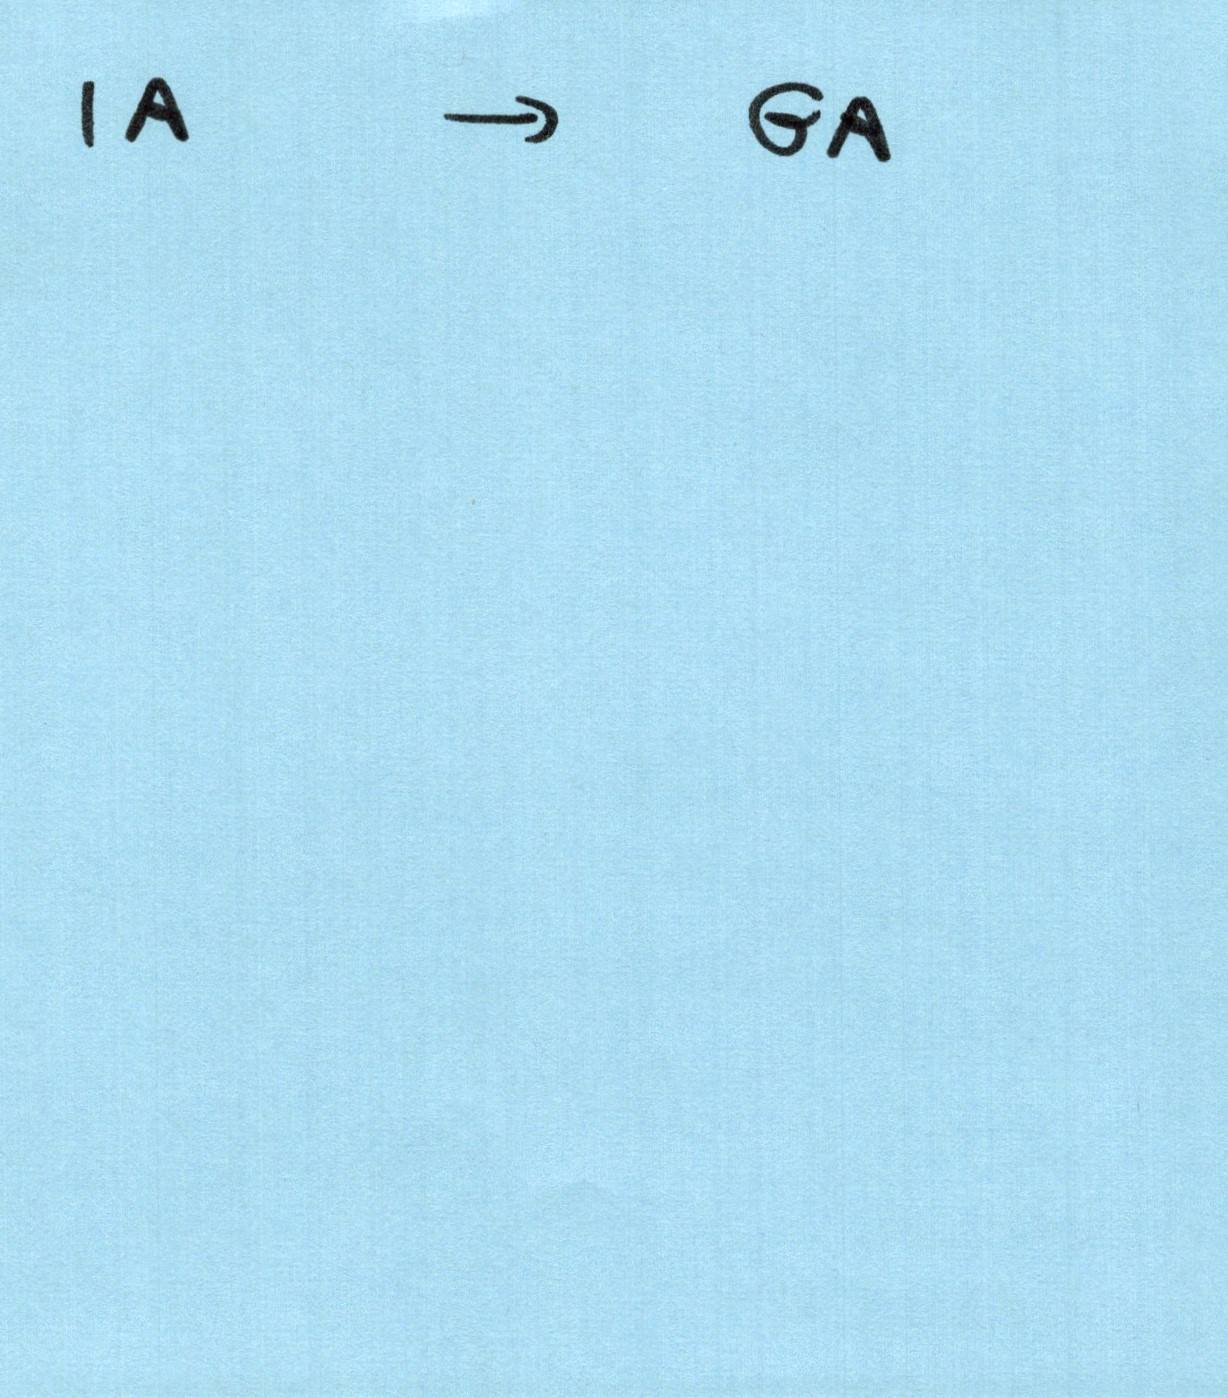 IA → GA